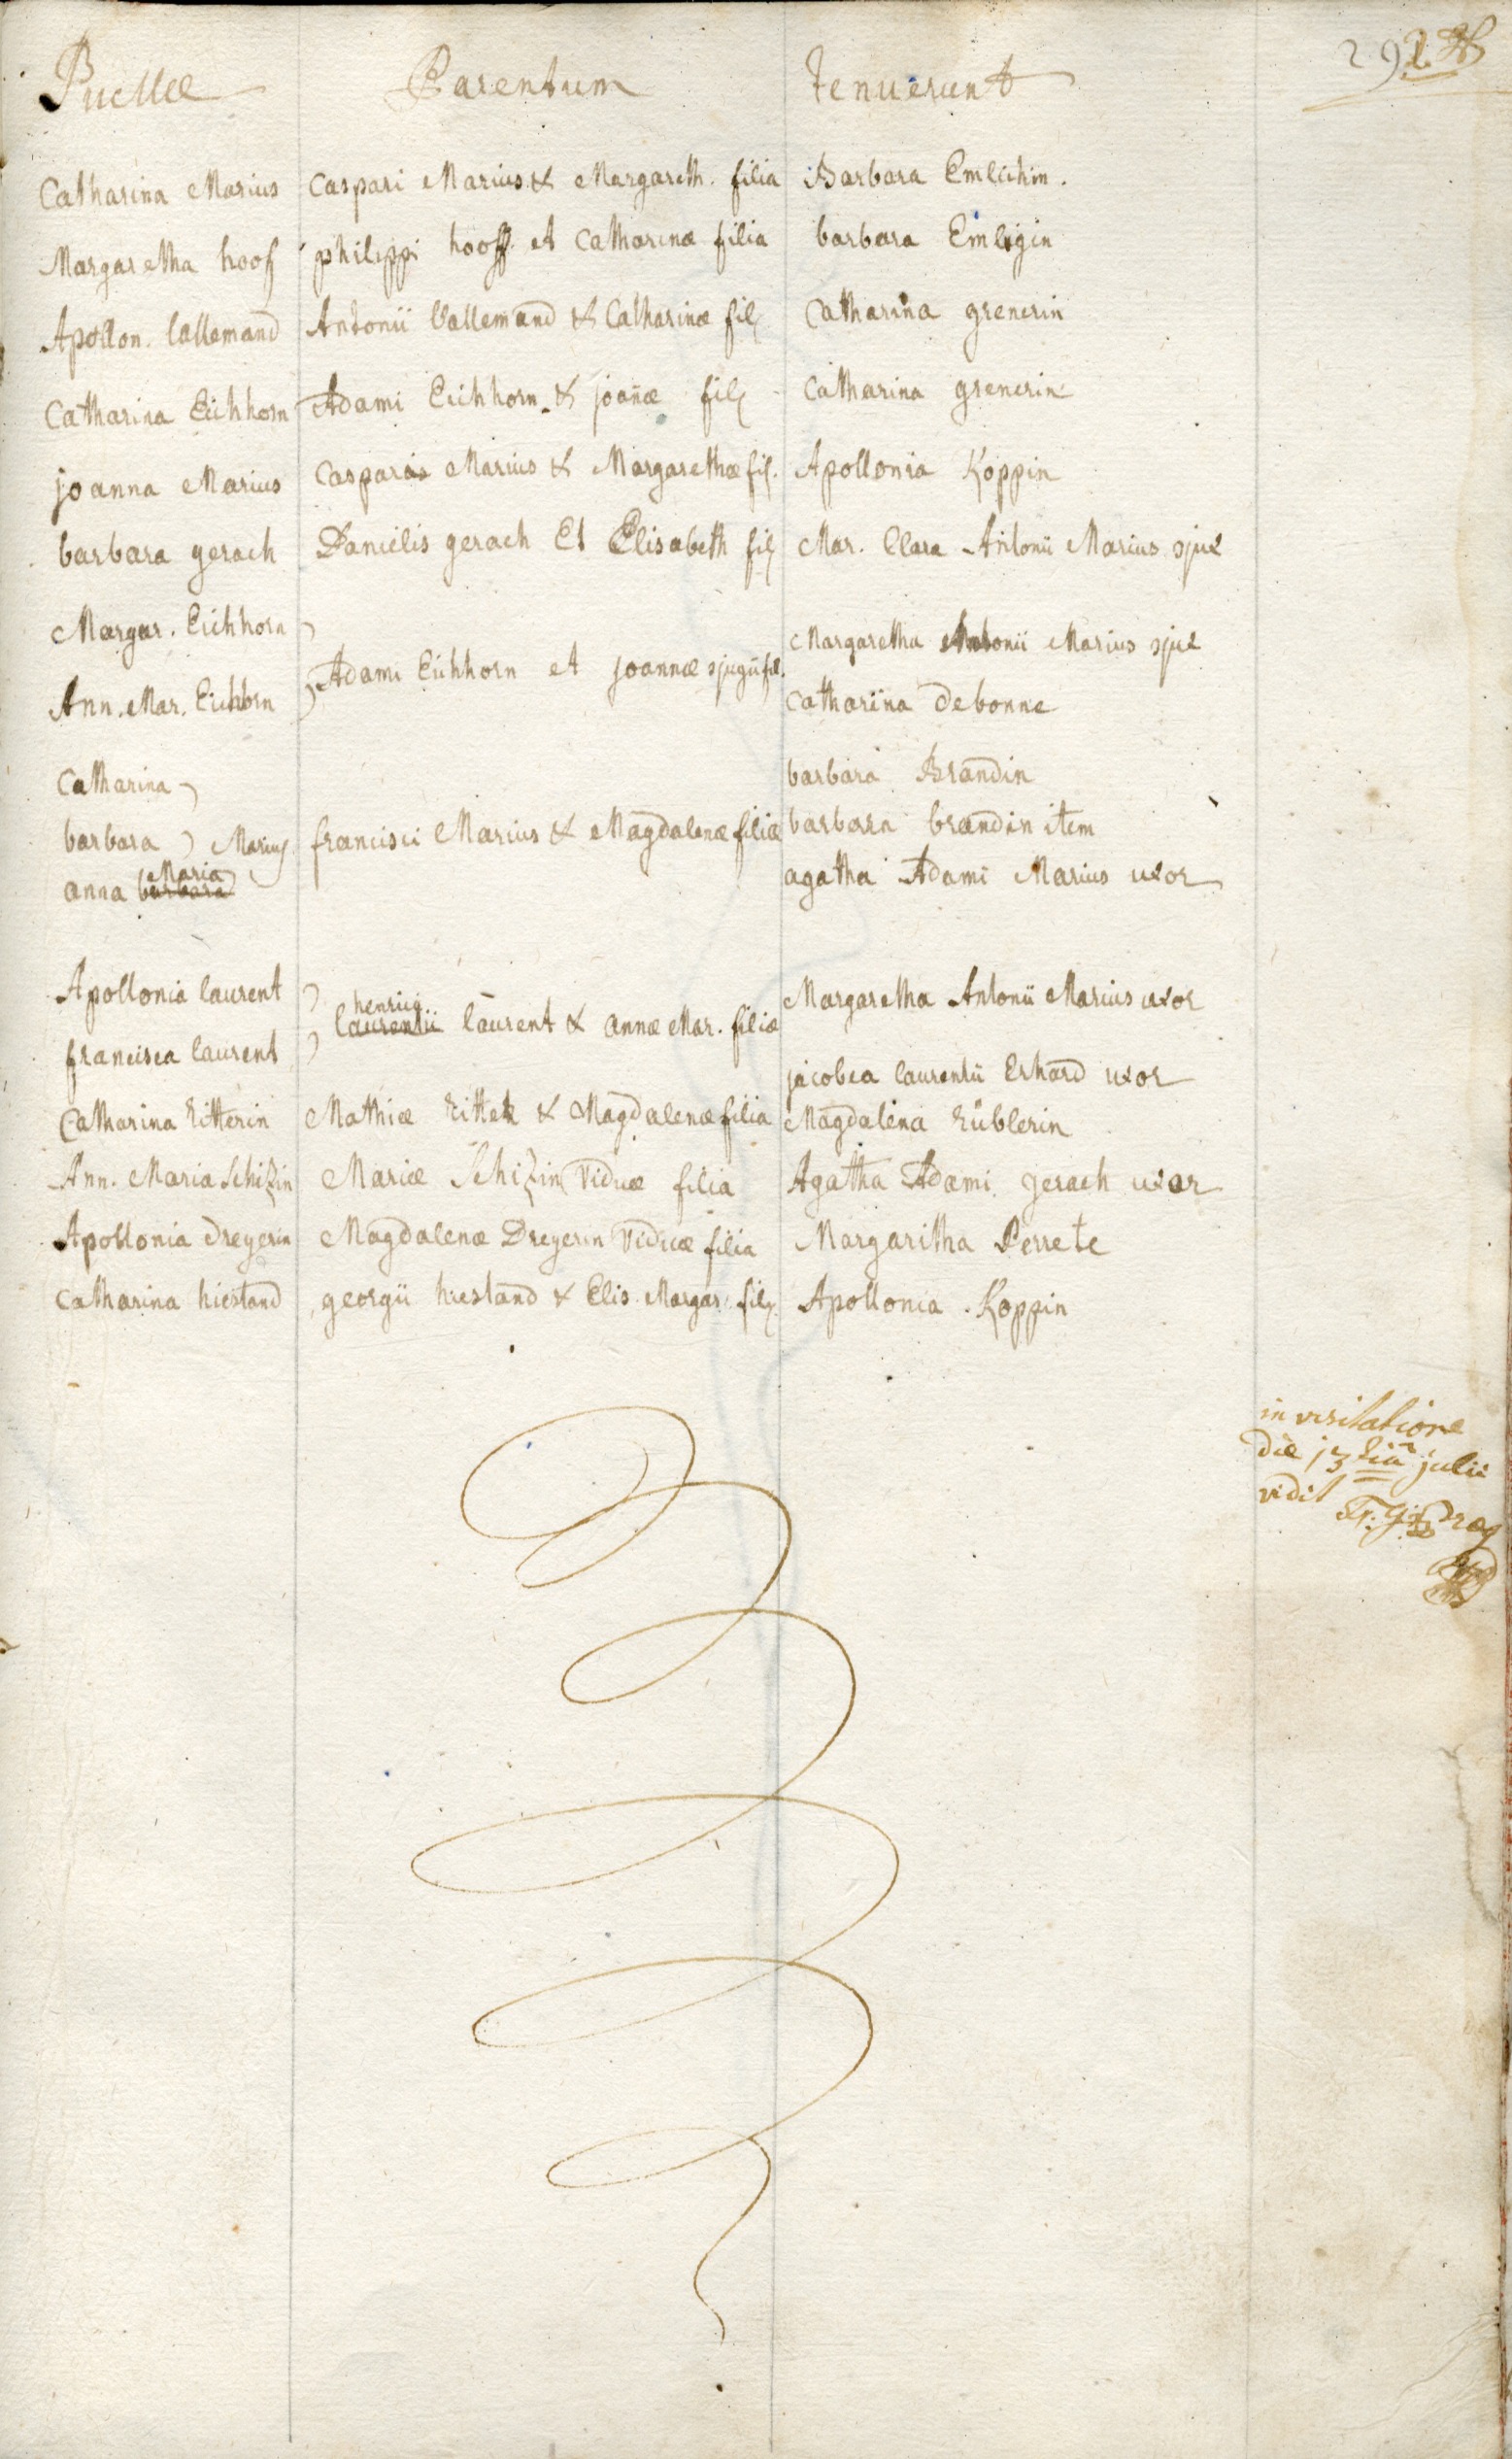 Puellæ Parentum tenuerunt
292
Catharina Marius Caspari Marius & Margareth. filia Barbara Emlichin.
Margaretha hooff philippi hooff et Catharinæ filia barbara Emligin
Apollon. lallemand Antonii lallemand & Catharinæ fil. Catharina grenerin
Catharina Eichhorn Adami Eichhorn & joañæ fil. Catharina grenerin
joanna Marius Caspari Marius & Margarethæ fil. Apollonia Koppin
barbara gerach Danielis gerach Et Elisabeth fil. Mar. Clara Antonii Marius ɔjux
Margar. Eichhorn Margaretha Antonii Marius ɔjux
Adami Eichhorn et joannæ ɔjugū fil.
Ann. Mar. Eichhorn Catharina debonne
Catharina barbara Brandin
barbara Marius francisci Marius & Magdalenæ filiæ barbara brandin item
Maria
anna barbara agatha Adami Marius uxor
Apollonia laurent Margaretha Antonii Marius uxor
henrici
laurentii laurent & annæ Mar. filiæ
francisca laurent jacobea laurentii Erhard uxor
Catharina ritterin Mathiæ ritter & Magdalenæ filia Magdalena rüblerin
Ann. Maria Schizin Mariæ Schizin viduæ filia Agatha Adami gerach uxor
Apollonia dreyerin Magdalenæ Dreyerin viduæ filia Margaritha Perrete
Catharina hiestand georgii hiestand & Elis. Margar. fil. Apollonia Koppin
in visitatione
die 13tia julii
vidit